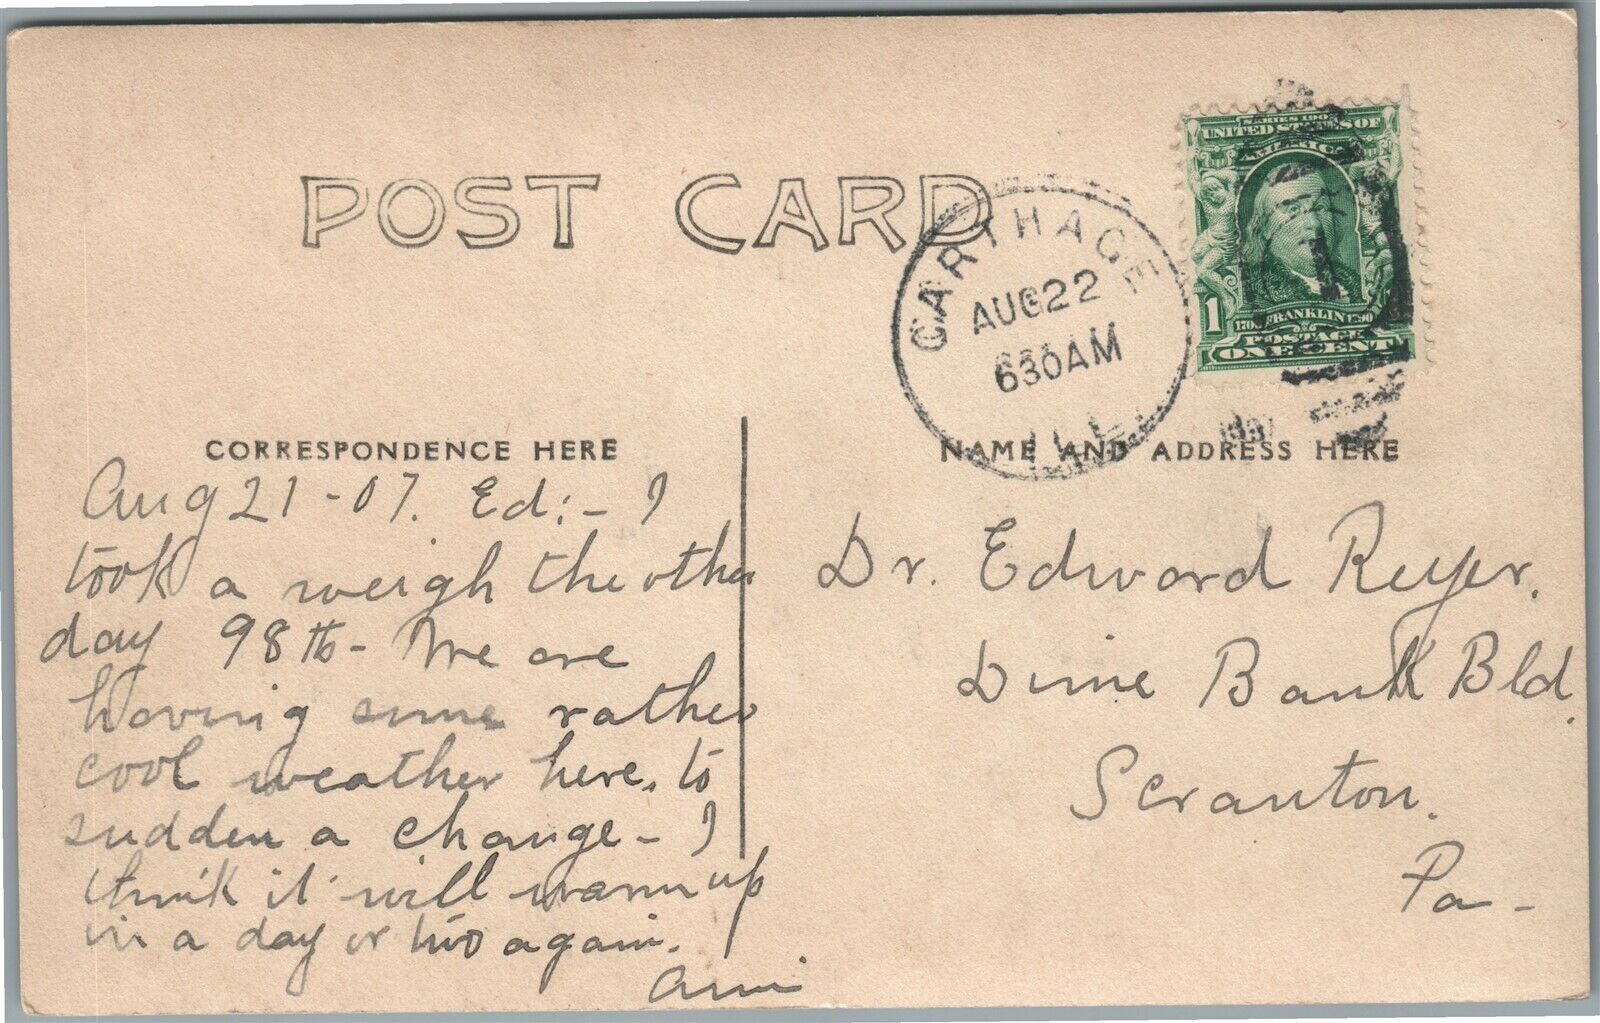 POST CARD
CARTHAGE
AUG 22
630AM
ILL.
1907
SERIES 1902
UNITED STATES OF
AMERICA
1
1706 FRANKLIN 1790
POSTAGE
ONE CENT
CORRESPONDENCE HERE
Aug 21-07. Ed:- I
took a weigh the other
day 98 lb- We are
having some rather
cool weather here, to
sudden a change- I
think it will warm up
in a day or two again.
NAME AND ADDRESS HERE
Dr. Edward Reyer.
Dime Bank Bld.
Scranton.
Pa-